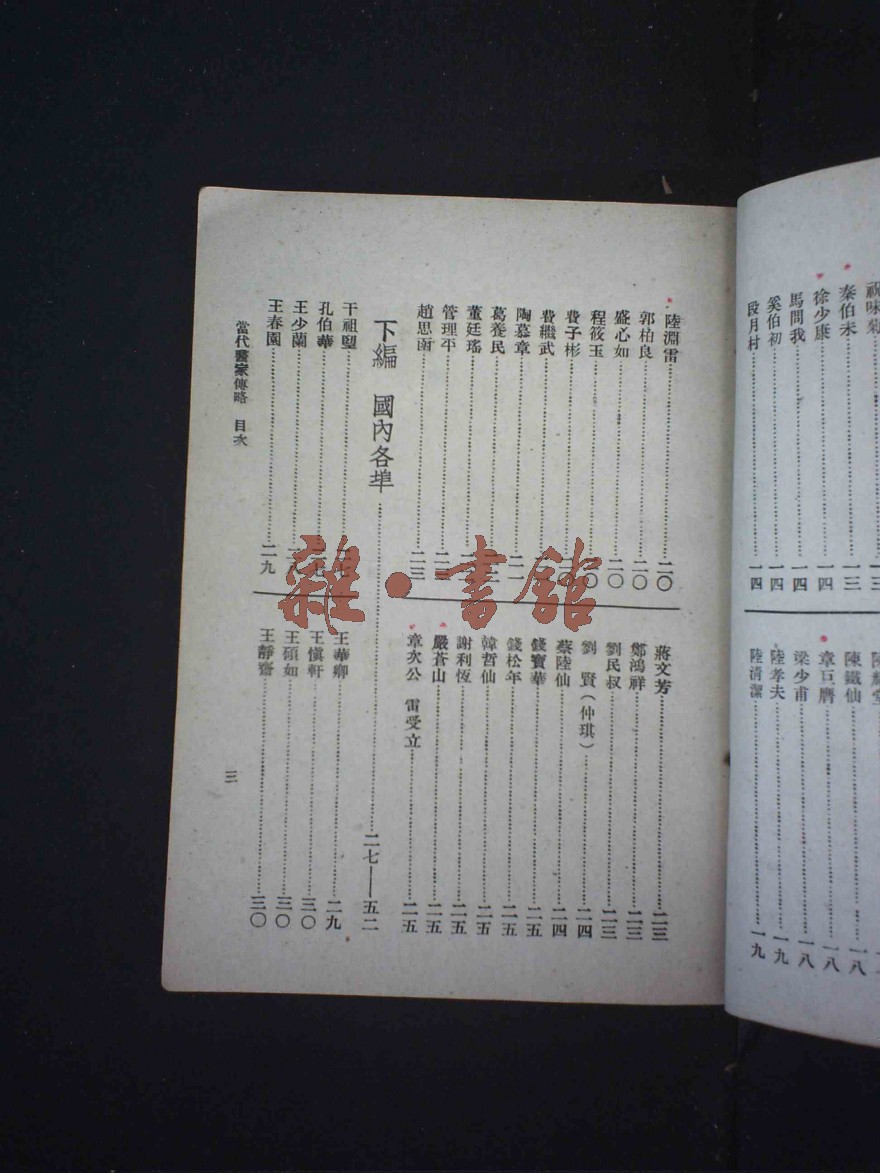 祝味菊……一三
秦伯未……一三
徐少康……一四
馬問我……一四
奚伯初……一四
段月村……一四
陳鐵仙……一八
章巨膺……一八
梁少甫……一八
陸孝夫……一九
陸清潔……一九
陸淵雷……二〇
郭柏良……二〇
盛心如……二〇
程筱玉……二〇
費子彬……二〇
費繼武……
陶慕章……二一
葛養民……
董廷瑤……
管理平……
趙思函……二三
蔣文芳……二三
鄭鴻祥……二三
劉民叔……二三
劉 賢(仲琪)……二四
蔡陸仙……二四
錢寶華……二五
錢松年……二五
韓哲仙……二五
謝利恆……二五
嚴蒼山……二五
章次公 雷受立……二五
下編 國內各埠……二七——五二
干祖望……二七
孔伯華……
王少蘭……二八
王春園……二九
王華卿……二九
王慎軒……三〇
王碩如……三〇
王靜齋……三〇
當代醫家傳略 目次
三
雜·書館